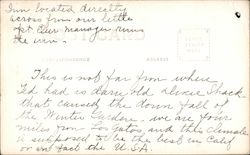 Inn located directly
across from our little
apt. Our manager runs
the inn.
POST CARD
CORRESPONDENCE ADDRESS
This is not far from where
Ed had is darn old Dixie Shack
that caused the down fall of
the Winter Garden. we are four
miles from Los Gatos and this climate
is supposed to be the best in Calif
or in fact the U.S.A.